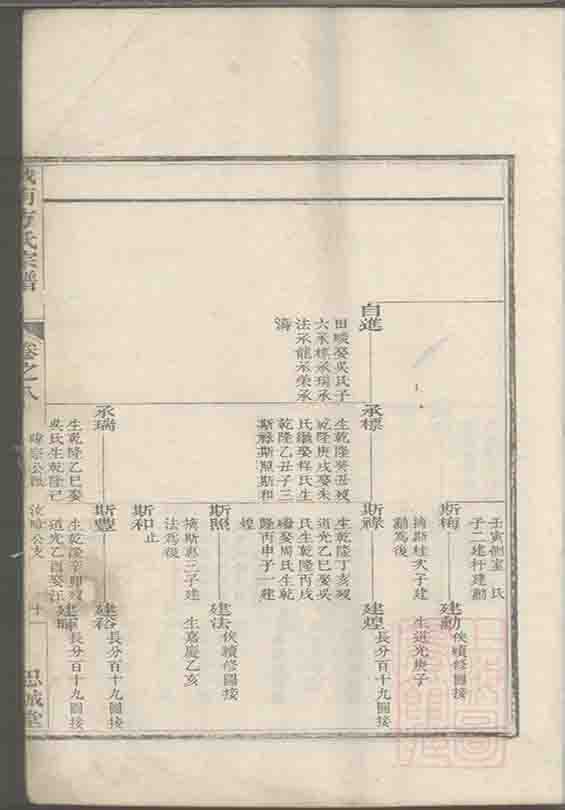 壬寅側室 氏
子二建杄建勳
斯梅
摘斯桂次子建
勳為後
建勳
俟續修圖接
生道光庚子
自進
田畯娶吳氏子
六承標承瑞承
法承龍承榮承
濤
承標
生乾隆癸丑歿
乾隆庚戌娶朱
氏繼娶程氏生
乾隆乙丑子三
斯祿斯照斯和
斯祿
生乾隆丁亥歿
道光乙巳娶吳
氏生乾隆丙戌
繼娶周氏生乾
隆丙申子一建
煌
建煌
長分百十九圖接
斯照
摘斯惠三子建
法為後
建法
俟續修圖接
生嘉慶乙亥
斯和
止
承瑞
生乾隆乙巳娶
吳氏生乾隆己
斯豐
生乾隆辛卯歿
道光乙酉娶江
建裕
長分百十九圖接
建暉
長分百十九圖接
城南方氏宗譜
卷之八
思誠堂